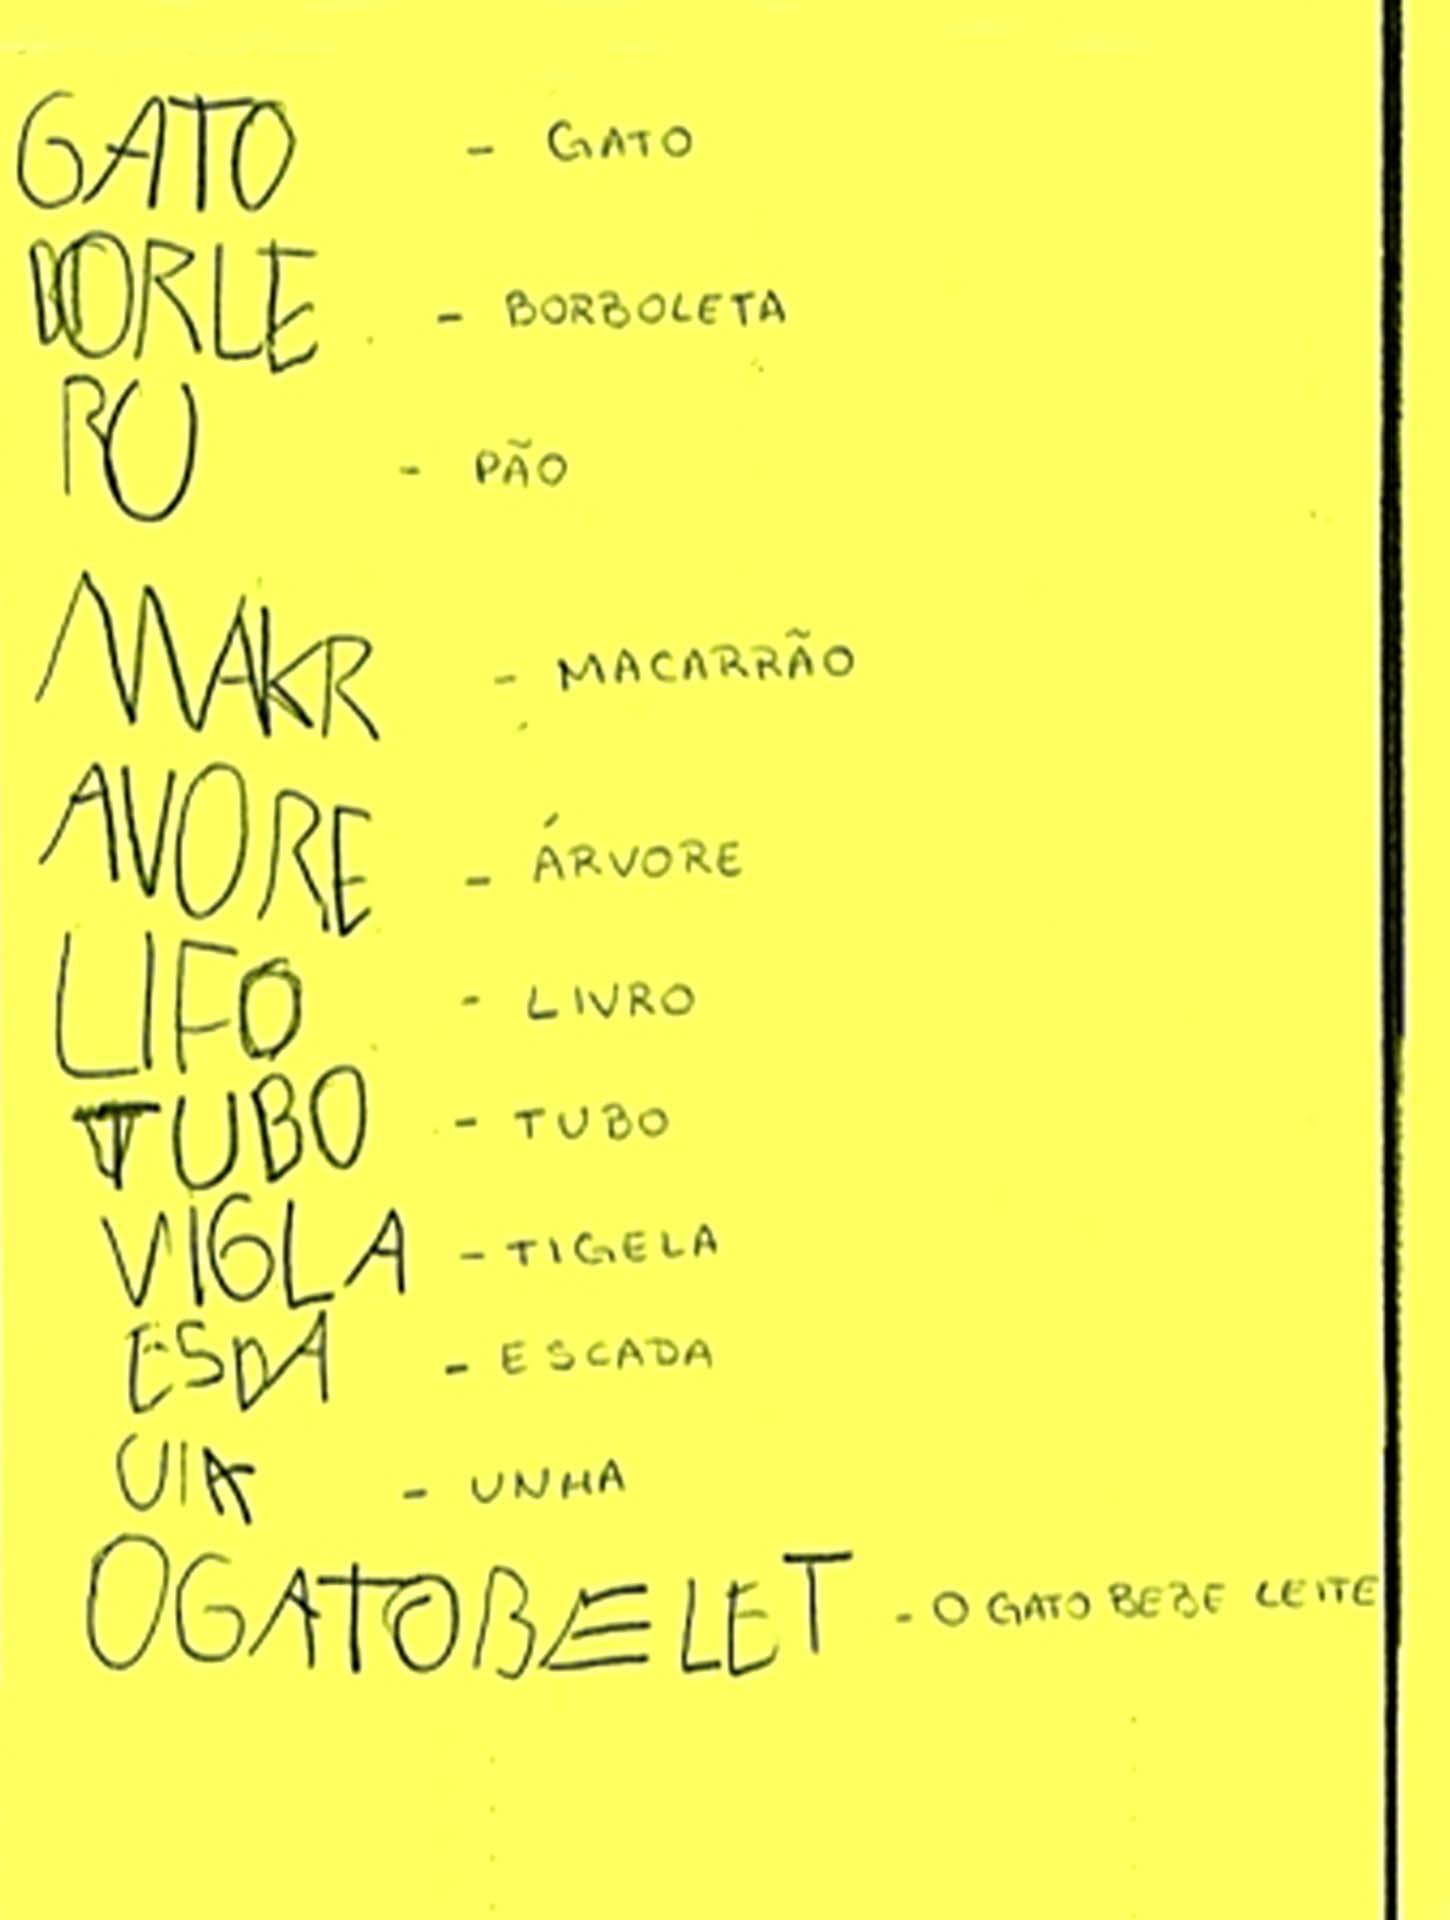 GATO - GATO
BORLE - BORBOLETA
PU - PÃO
MAKR - MACARRÃO
AVORE - ÁRVORE
LIFO - LIVRO
TUBO - TUBO
VIGLA - TIGELA
ESDA - ESCADA
UIA - UNHA
OGATOBELET - O GATO BEBE LEITE